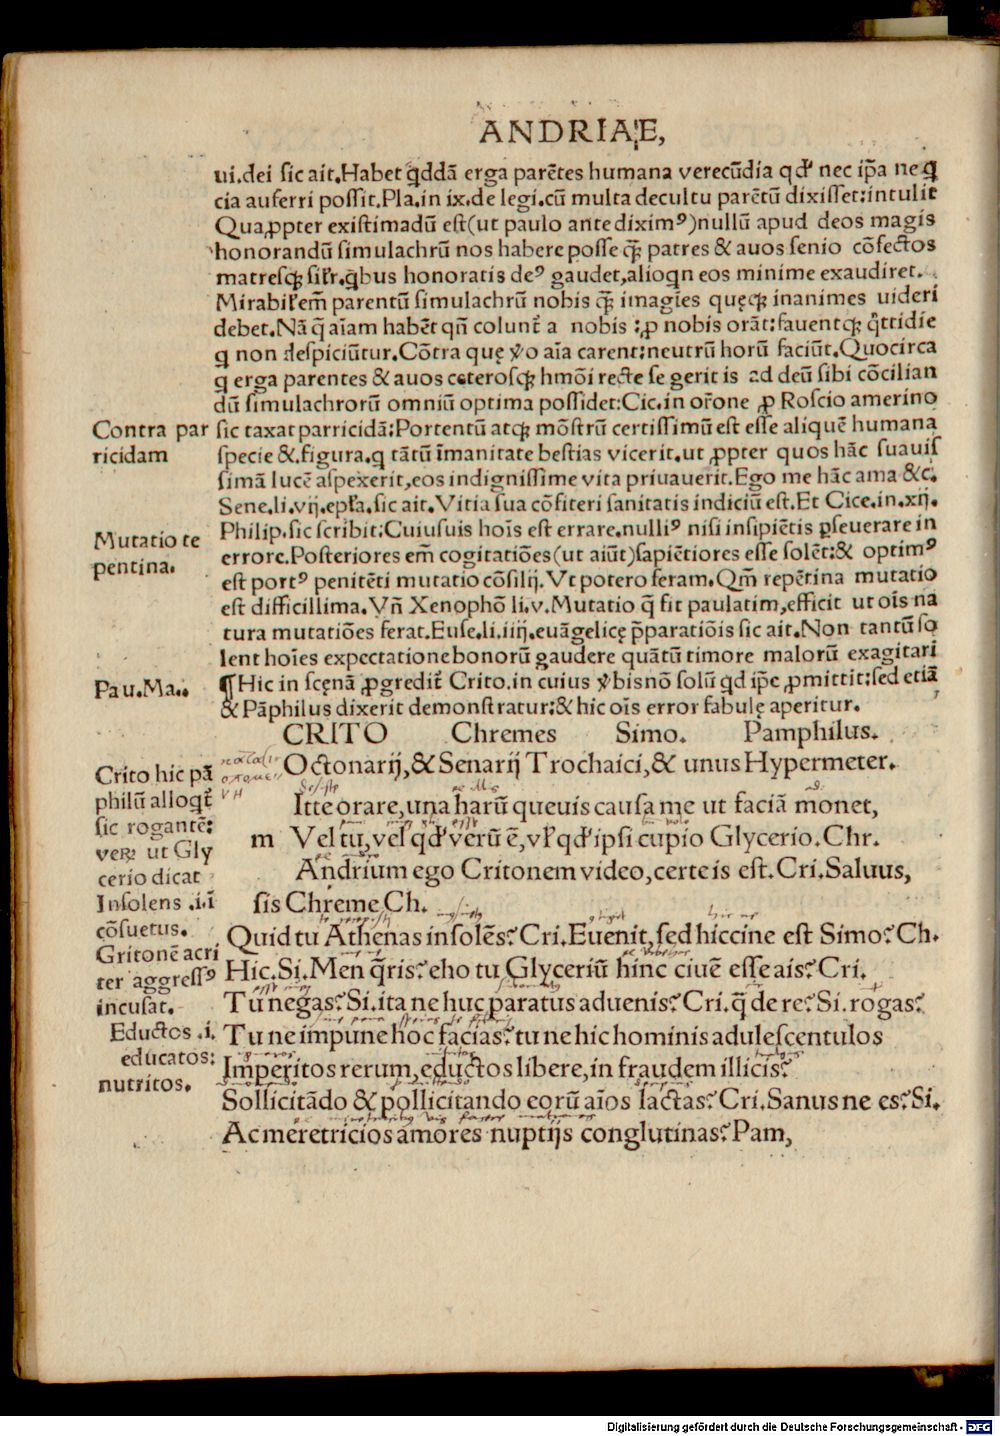 ANDRIAE,
ui.dei sic ait.Habet qddā erga parētes humana verecūdia qd' nec ip̄a neq̄
cia auferri possit.Pla.in ix.de legi.cū multa decultu parētū dixisset:intulit
Qua,ppter existimadū est(ut paulo ante diximꝰ)nullū apud deos magis
honorandū simulachrū nos habere posse q̄ꝫ patres & auos senio cōfectos
matresqꝫ sil'r.qbus honoratis deꝰ gaudet,alioqn eos minime exaudiret.
Mirabil'em̄ parentū simulachrū nobis q̄ꝫ imagīes quęqꝫ inanimes uideri
debet.Nā q̄ aīam habēt qn̄ colunt̄ a nobis :ꝓ nobis orāt:fauentqꝫ q̄ttidie
q non despiciūtur.Cōtra quę ꝟo aīa carent:neutrū horū faciūt.Quocirca
q erga parentes & auos ceterosqꝫ hmōi recte se gerit is ad deū sibi cōcilian
dū simulachrorū omniū optima possidet:Cic.in or̄one ꝓ Roscio amerino
Contra par
ricidam
sic taxat parricidā:Portentū atqꝫ mōstrū certissimū est esse aliquē humana
specie &.figura.q tātū īmanitate bestias vicerit.ut ꝓpter quos hāc suauis
simā lucē aspexerit,eos indignissime vita priuauerit.Ego me hāc ama &c.
Sene.li.vij.epl'a.sic ait.Vitia sua cōfiteri sanitatis indiciū est.Et Cice.in.xij.
Mutatio te
pentina.
Philip.sic scribit:Cuiusuis hoīs est errare.nulliꝰ nisi insipiētis ꝑseuerare in
errore.Posteriores em̄ cogitatiōes(ut aiūt)sapiētiores esse solēt:& optimꝰ
est portꝰ penitēti mutatio cōsilij.Vt potero feram.Qm̄ repētina mutatio
est difficillima.Vn̄ Xenophō li.v.Mutatio q̄ fit paulatim,efficit ut oīs na
tura mutatiōes ferat.Euse.li.iiij.euāgelicę p̄paratiōis sic ait.Non tantū so
lent hoīes expectatione bonorū gaudere quātū timore malorū exagitari
Pau.Ma.
¶Hic in scęnā ꝓgredit̄ Crito.in cuius ꝟbis nō solū qd ip̄e ꝓmittit:sed etiā
& Pāphilus dixerit demonstratur:& hic oīs error fabulę aperitur.
CRITO Chremes Simo. Pamphilus.
Octonarij,& Senarij Trochaici,& unus Hypermeter.
Crito hic pā
philū alloqt̄
sic rogantē:
ver ut Gly
cerio dicat
Insolens .i.ī
cōsuetus.
Gritonē acri
ter aggressꝰ
incusat.
Eductos .i.
educatos:
nutritos.
Itte orare,una harū queuis causa me ut faciā monet,
m Vel tu,vel qd' verū ē,vl' qd' ipsi cupio Glycerio.Chr.
Andrium ego Critonem video,certe is est.Cri.Saluus,
sis Chreme.Ch.
Quid tu Athenas insolēs?Cri.Euenit,sed hiccine est Simo?Ch.
Hic.Si.Men q̄ris?eho tu Glyceriū hinc ciuē esse ais?Cri.
Tu negas?Si.ita ne huc paratus aduenis?Cri.q̄ de re?Si.rogas?
Tu ne impune hoc facias?tu ne hic hominis adulescentulos
Imperitos rerum,eductos libere,in fraudem illicis?
Sollicitādo & pollicitando eorū aīos lactas?Cri.Sanus ne es?Si.
Ac meretricios amores nuptijs conglutinas?Pam,
Digitalisierung gefördert durch die Deutsche Forschungsgemeinschaft - DFG